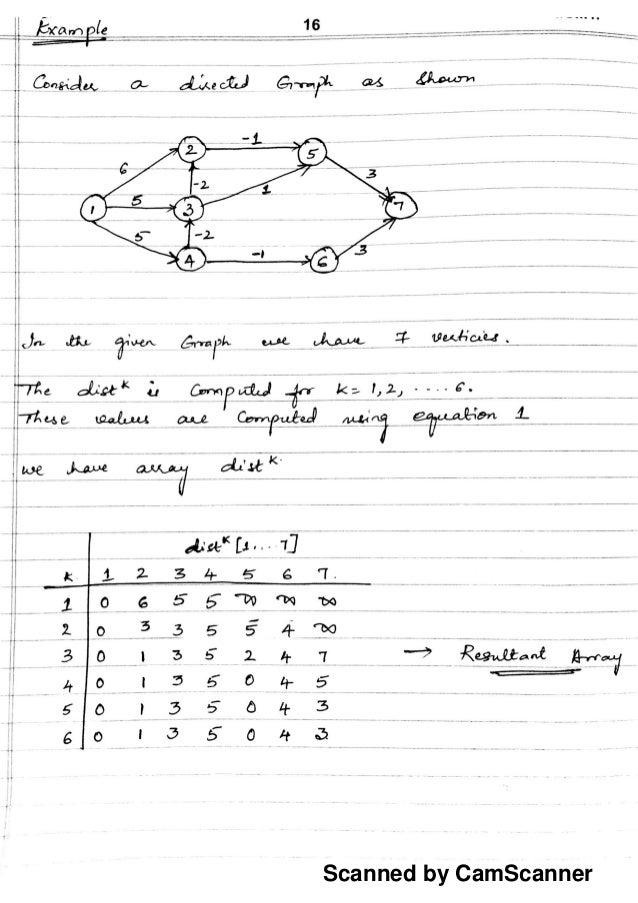 Example
16
Consider a directed Graph as shown
-1
2
5
6
3
-2
1
5
1
3
7
5
-2
4
-1
6
3
In the given Graph we have 7 verticies.
The dist^k is Computed for k= 1,2, .... 6.
These values are Computed using equation 1
we have array dist^k.
dist^k [1....7]
k 1 2 3 4 5 6 7.
1 0 6 5 5 ∞ ∞ ∞
2 0 3 3 5 5 4 ∞
3 0 1 3 5 2 4 7 → Resultant Array
4 0 1 3 5 0 4 5
5 0 1 3 5 0 4 3
6 0 1 3 5 0 4 3
Scanned by CamScanner